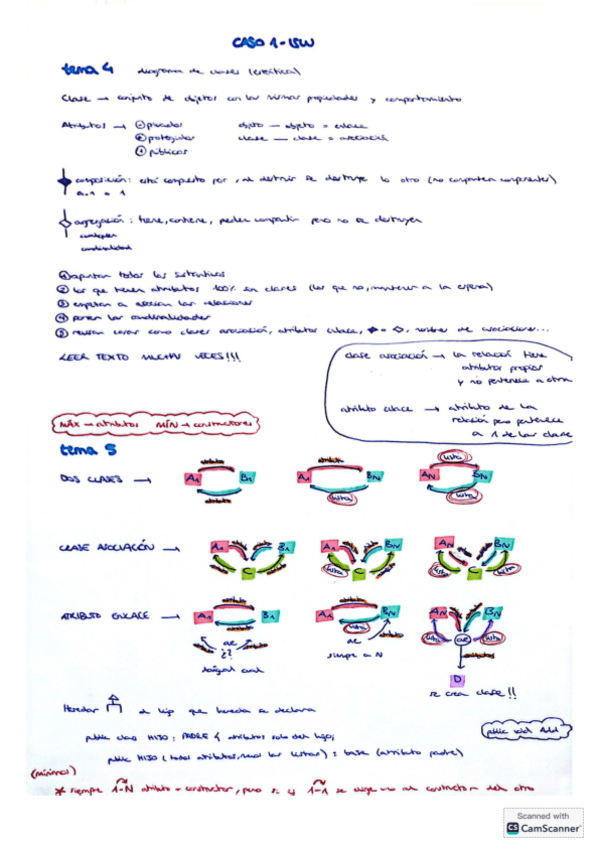 CASO 1 - ISW
tema 4 diagrama de clases (estática)
Clase → conjunto de objetos con las mismas propiedades y comportamiento
Atributos → - privados objeto — objeto = enlace
# protegidos clase — clase = asociación
+ públicos
composición: está compuesto por, al destruir se destruye lo otro (no comparten componentes)
0..1 o 1
agregación: tiene, contiene, pueden compartir pero no se destruyen
cualquier
cardinalidad
1 apuntan todos los sustantivos
2 los que tienen atributos 100% son clases (los que no, mantener a la espera)
3 empiezan a asociar las relaciones
4 ponen las cardinalidades
5 revisan cosas como clases asociación, atributos enlace, ◆ = ◇, nombres de asociaciones...
LEER TEXTO MUCHAS VECES!!!
clase asociación → la relación tiene
atributos propios
y no pertenece a otra
atributo enlace → atributo de la
relación pero pertenece
a 1 de las clases
MÁX → atributos MÍN → constructores
tema 5
DOS CLASES →
atributo atributo lista
A1 B1 A1 BN AN BN
atributo lista lista
CLASE ASOCIACIÓN →
A1 B1 A1 BN AN BN
C lista C lista C lista
ATRIBUTO ENLACE →
A1 B1 A1 BN AN BN
lista lista lista
ae ae ae
?? siempre a N
D
se crea clase!!
Heredar el hijo que hereda se declara
public void Add
public class HIJO : PADRE { atributos solo del hijo;
public HIJO (todos atributos, menos las listas) : base (atributo padre)
(mínimos)
* siempre 1-N atributo - constructor, pero si es 1-1 se elige uno al constructor del otro